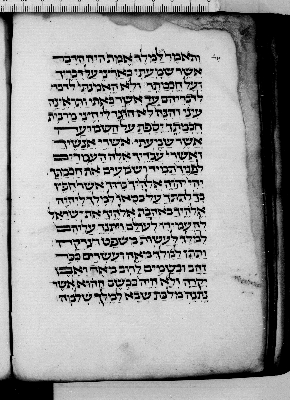 ותאמר למלך אמת היה הדבר
אשר שמעתי בארצי על דבריך
ועל חכמתך ולא האמנתי לדברי
לדבריהם עד אשר באתי ותראינה
עיני והנה לא הגד לי חצי מרבית
חכמתך יספת על השמועה
אשר שמעתי אשרי אנשיך
ואשרי עבדיך אלה העמדים
לפניך תמיד ושמעים את חכמתך
יהי יהוה אלהיך ברוך אשר חפץ
בך לתתך על כסאו למלך ליהוה
אלהיך באהבת אלהיך את ישראל
להעמידו לעולם ויתנך עליהם
למלך לעשות משפט וצדקה
ותתן למלך מאה ועשרים ככר
זהב ובשמים לרב מאד ואבן
יקרה ולא היה כבשם ההוא אשר
נתנה מלכת שבא למלך שלמה